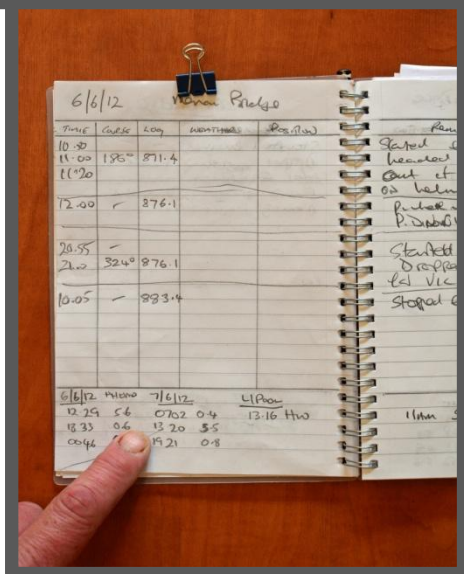 6/6/12 Bridge
TIME COURSE LOG WEATHER POSITION
10.30
11.00 186° 871.4
11.20
12.00 - 876.1
20.55 -
21.0 324° 876.1
10.05 - 883.4
6/6/12 7/6/12 L/Pool
12 29 5.6 0702 0.4 13.16 HW
18 33 0.6 13 20 5.5
0046 19 21 0.8
Started
headed
out of
on
Started
Dropped
Vic
Stopped